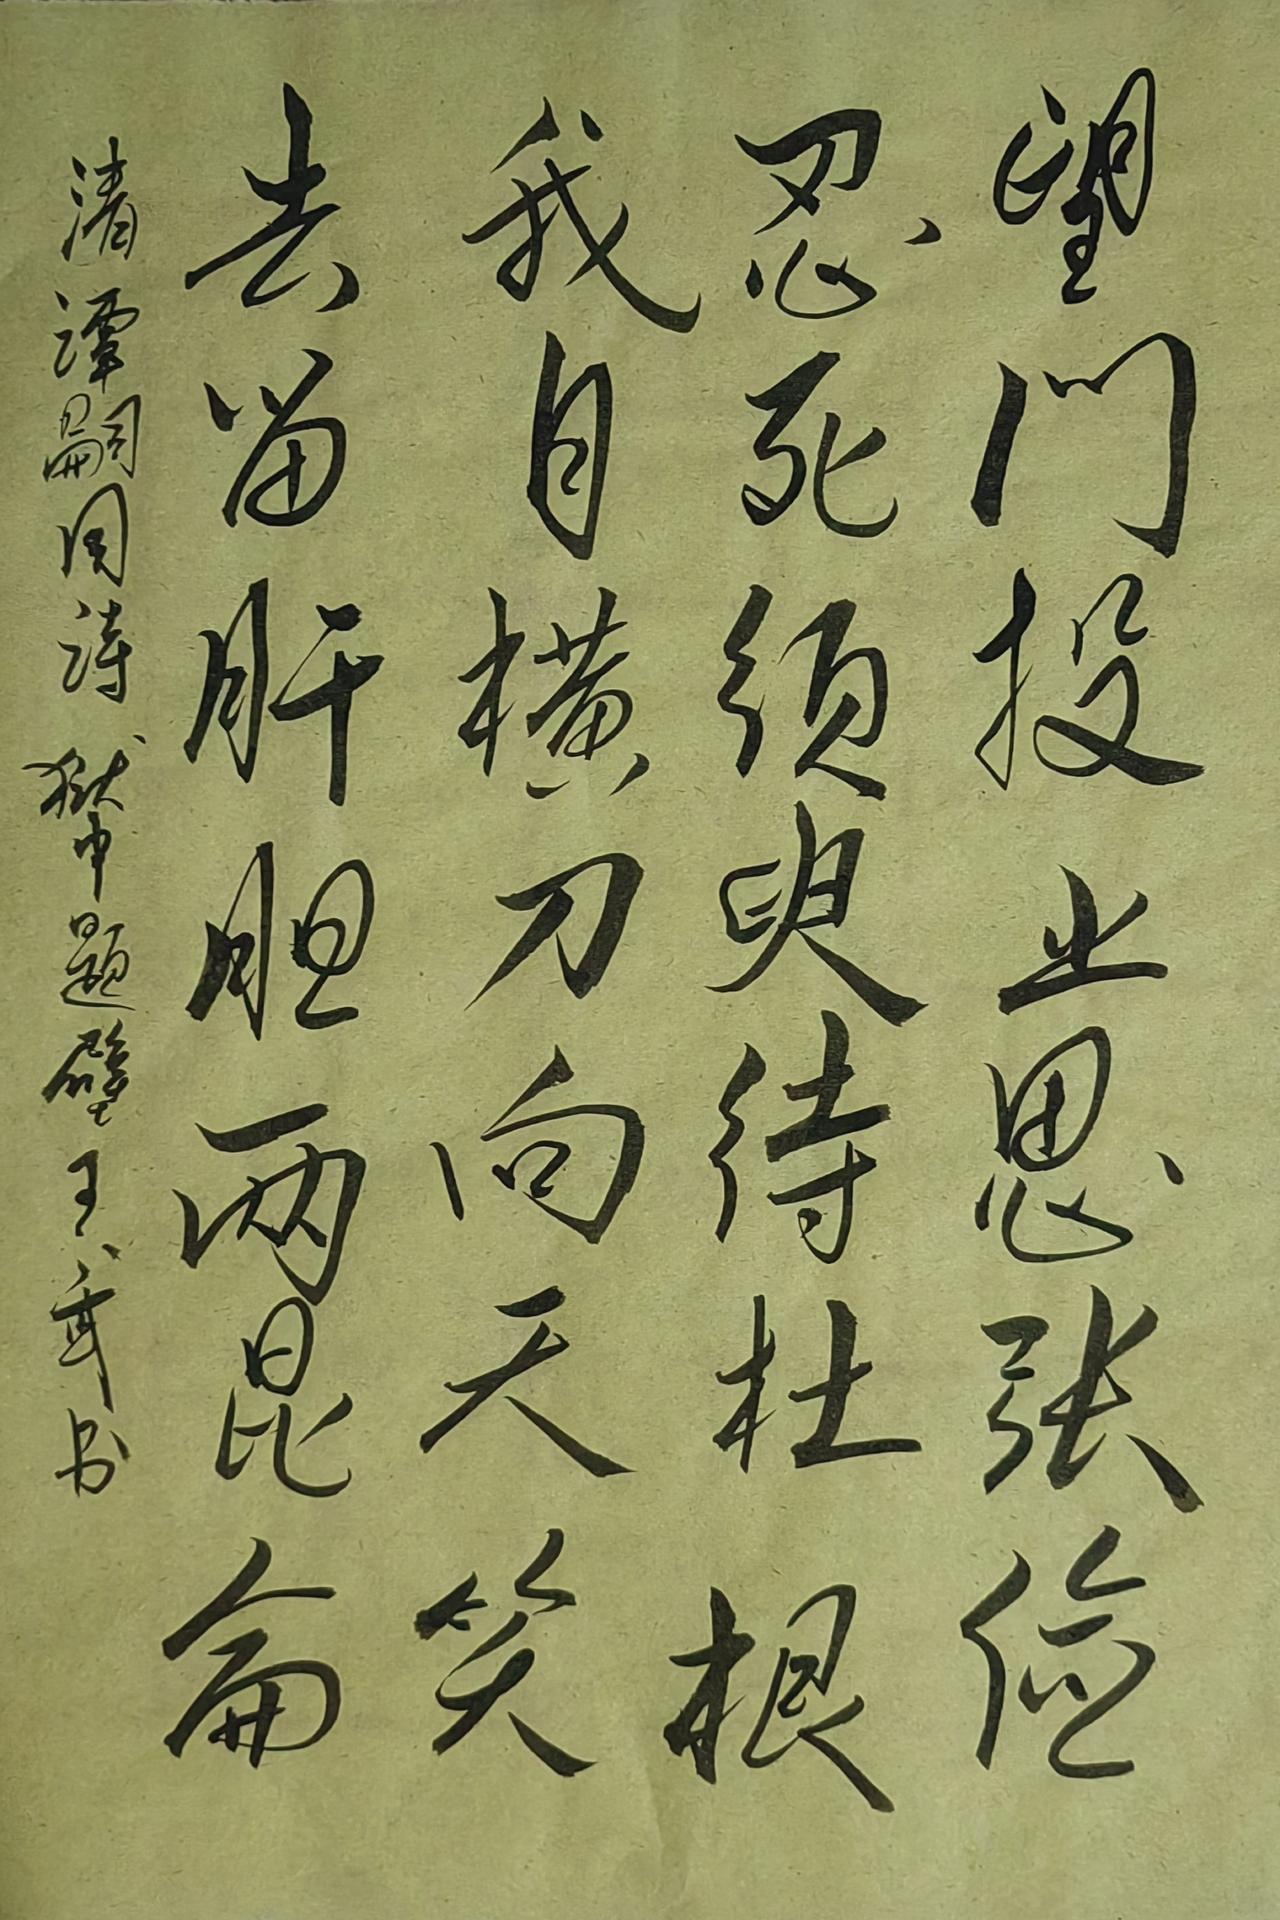 望门投止思张俭
忍死须臾待杜根
我自横刀向天笑
去留肝胆两昆侖
清谭嗣同诗狱中题壁王书